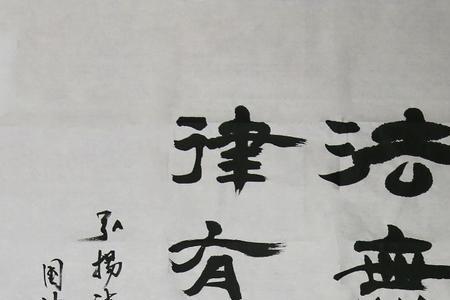 法無
律有
弘揚
国